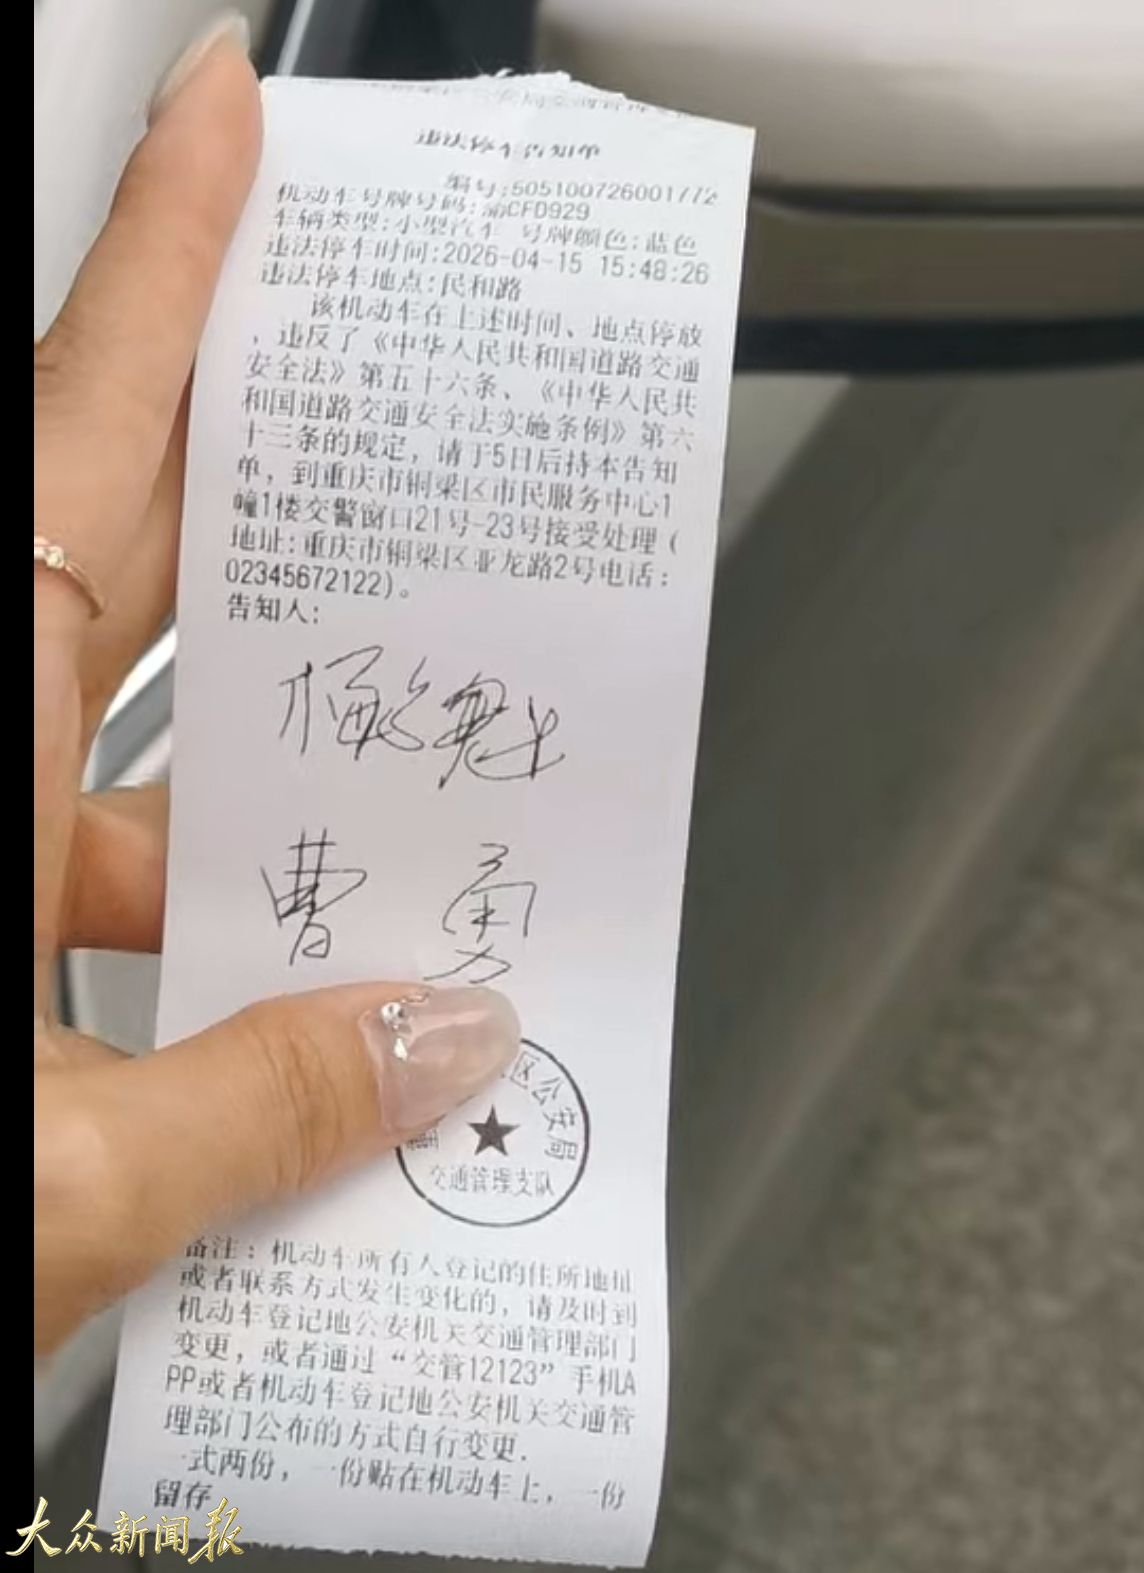 违法停车告知单
编号:5051007260017​72
机动车号牌号码:渝CFD929
车辆类型:小型汽车 号牌颜色:蓝色
违法停车时间:2026-04-15 15:48:26
违法停车地点:民和路
该机动车在上述时间、地点停放
，违反了《中华人民共和国道路交通
安全法》第五十六条、《中华人民共
和国道路交通安全法实施条例》第六
十三条的规定，请于5日后持本告知
单，到重庆市铜梁区市民服务中心1
幢1楼交警窗口21号-23号接受处理(
地址:重庆市铜梁区亚龙路2号电话:
02345672122)。
告知人:
曹 勇
区公安局
交通管理支队
备注:机动车所有人登记的住所地址
或者联系方式发生变化的，请及时到
机动车登记地公安机关交通管理部门
变更，或者通过“交管12123”手机A
PP或者机动车登记地公安机关交通管
理部门公布的方式自行变更.
一式两份，一份贴在机动车上，一份
留存
大众新闻报